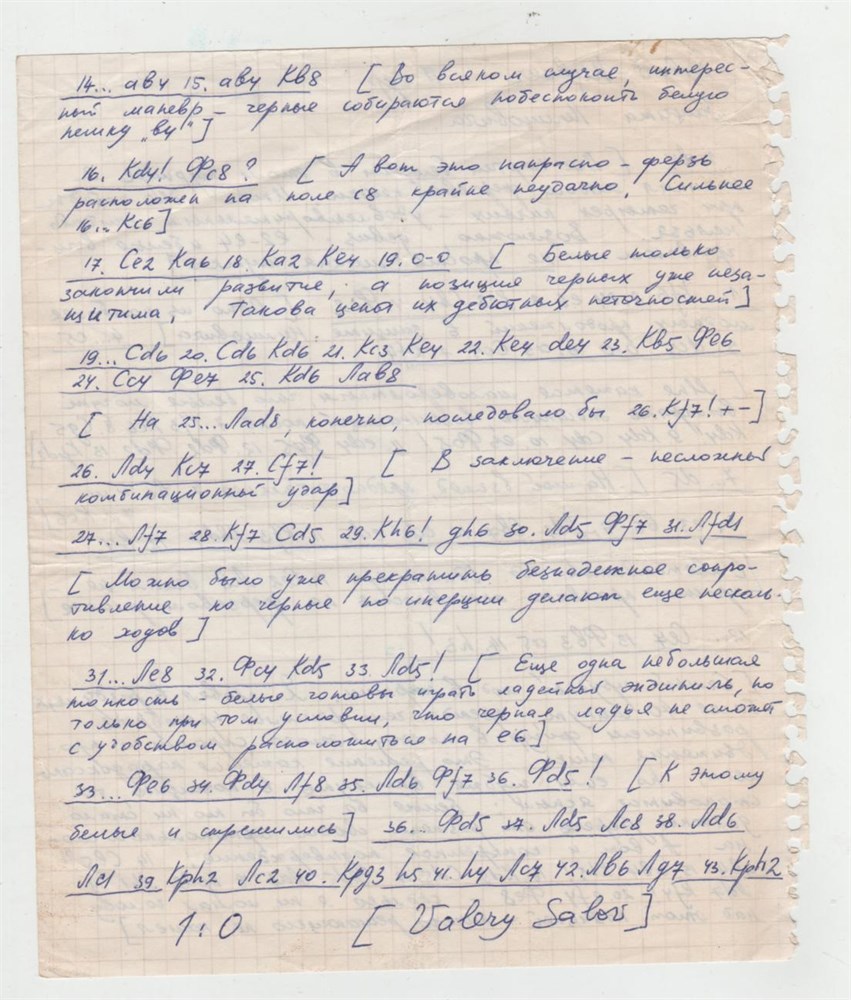 14... ав4 15. ав4 Кв8 [ Во всяком случае, интерес-
ный маневр – черные собираются побеспокоить белую
пешку „в4“]
16. Кd4! Фс8? [ А вот это напрасно – ферзь
расположен на поле с8 крайне неудачно, Сильнее
16... Кс6]
17. Се2 Ка6 18. Ка2 Ке4 19. 0-0 [ Белые только
закончили развитие, а позиция черных уже неза-
щитима, Такова цена их дебютных неточностей]
19... Сd6 20. Сd6 Кd6 21. Кс3 Ке4 22. Ке4 de4 23. Кв5 Фе6
24. Сс4 Фе7 25. Кd6 Лав8
[ На 25... Лad8, конечно, последовало бы 26. Кf7! +-]
26. Лd4 Кс7 27. Сf7! [ В заключение – несложный
комбинационный удар]
27... Лf7 28. Кf7 Сd5 29. Кh6! gh6 30. Лd5 Фf7 31. Лfd1
[ Можно было уже прекратить безнадежное сопро-
тивление, но черные по инерции делают еще несколь-
ко ходов]
31... Ле8 32. Фс4 Кd5 33 Лd5! [ Еще одна небольшая
тонкость – белые готовы играть ладейный эндшпиль, но
только при том условии, что черная ладья не сможет
с удобством расположиться на е6]
33... Фе6 34. Фd4 Лf8 35. Лd6 Фf7 36. Фd5! [ К этому
белые и стремились] 36... Фd5 37. Лd5 Лс8 38. Лd6
Лс1 39. Крh2 Лс2 40. Крg3 h5 41. h4 Лс7 42. Лв6 Лg7 43. Крh2
1:0 [ Valery Salov ]